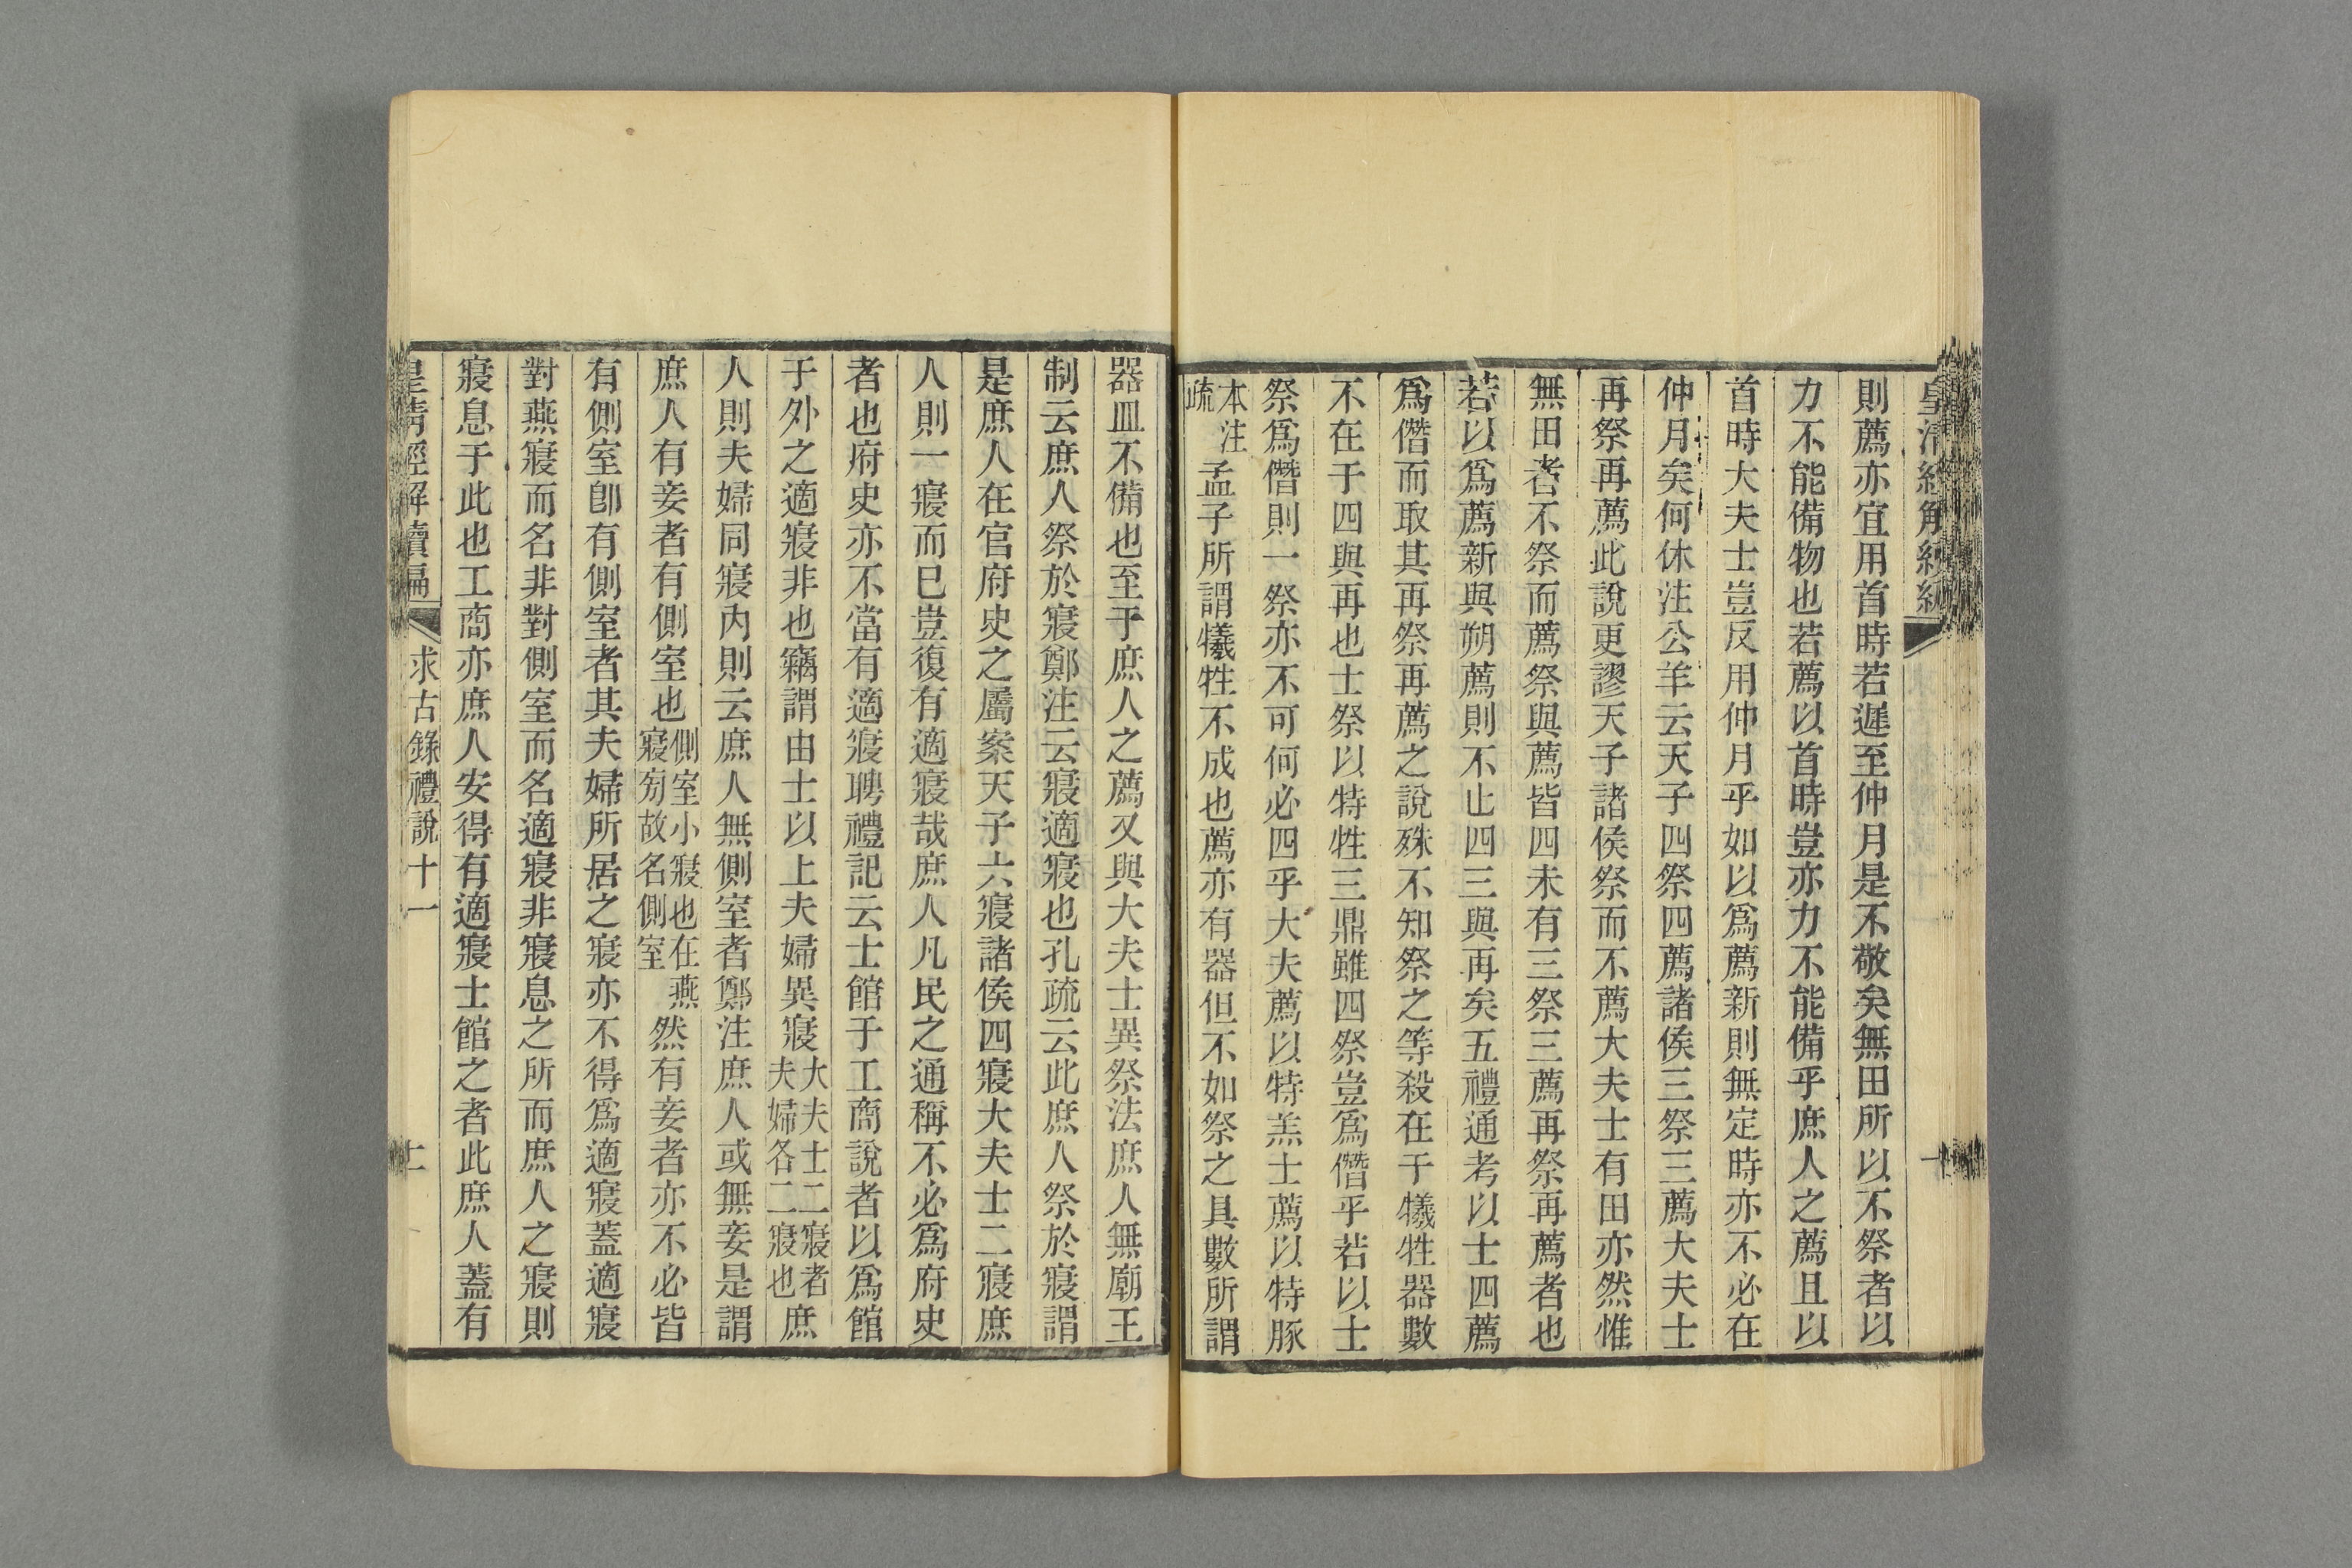 皇清經解續編
則薦亦宜用首時若遲至仲月是不敬矣無田所以不祭者以
力不能備物也若薦以首時豈亦力不能備乎庶人之薦且以
首時大夫士豈反用仲月乎如以爲薦新則無定時亦不必在
仲月矣何休注公羊云天子四祭四薦諸侯三祭三薦大夫士
再祭再薦此說更謬天子諸侯祭而不薦大夫士有田亦然惟
無田者不祭而薦祭與薦皆四未有三祭三薦再祭再薦者也
若以爲薦新與朔薦則不止四三與再矣五禮通考以士四薦
爲僭而取其再祭再薦之說殊不知祭之等殺在于犧牲器數
不在于四與再也士祭以特牲三鼎雖四祭豈爲僭乎若以士
祭爲僭則一祭亦不可何必四乎大夫薦以特羔士薦以特豚
本注
疏
孟子所謂犧牲不成也薦亦有器但不如祭之具數所謂
器皿不備也至于庶人之薦又與大夫士異祭法庶人無廟王
制云庶人祭於寢鄭注云寢適寢也孔疏云此庶人祭於寢謂
是庶人在官府史之屬案天子六寢諸侯四寢大夫士二寢庶
人則一寢而巳豈復有適寢哉庶人凡民之通稱不必爲府史
者也府史亦不當有適寢聘禮記云士館于工商說者以爲館
于外之適寢非也竊謂由士以上夫婦異寢
大夫士二寢者
夫婦各二寢也
庶
人則夫婦同寢內則云庶人無側室者鄭注庶人或無妾是謂
庶人有妾者有側室也
側室小寢也在燕
寢旁故名側室
然有妾者亦不必皆
有側室卽有側室者其夫婦所居之寢亦不得爲適寢蓋適寢
對燕寢而名非對側室而名適寢非寢息之所而庶人之寢則
寢息于此也工商亦庶人安得有適寢士館之者此庶人蓋有
皇清經解續編
求古錄禮說十一